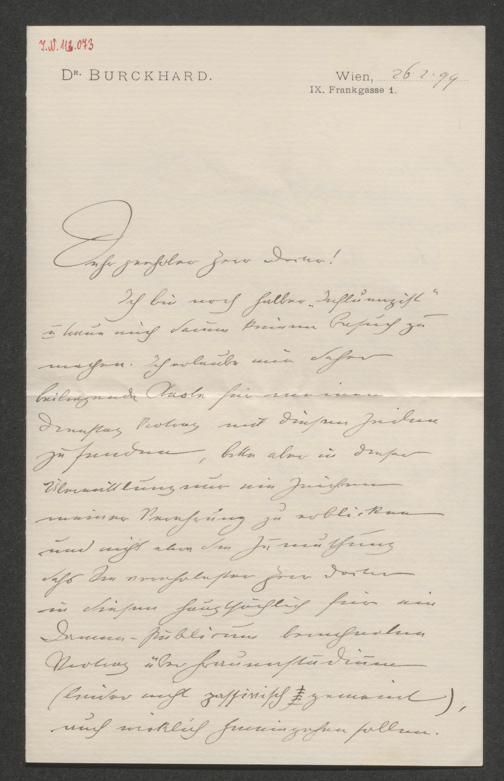 I.N. 112.073
Dr. BURCKHARD.
Wien, 26.2.99
IX. Frankgasse 1.
Sehr geehrter Herr Doctor!
Ich bin noch halber „Influenzist“
u kann mich darum keinen Besuch zu
machen. Ich erlaube mir daher
beiliegende Karte für meinen
Dienstag Vortrag mit diesen Zeilen
zu senden, bitte aber in dieser
Übermittlung nur ein Zeichen
meiner Verehrung zu erblicken
und nicht etwa die Zumuthung
daß Sie verehrtester Herr Doctor
in diesen hauptsächlich für ein
Damen-Publicum berechneten
Vortrag über Frauenstudium
(leider nicht passivisch gemeint),
auch wirklich hineingehen sollen.